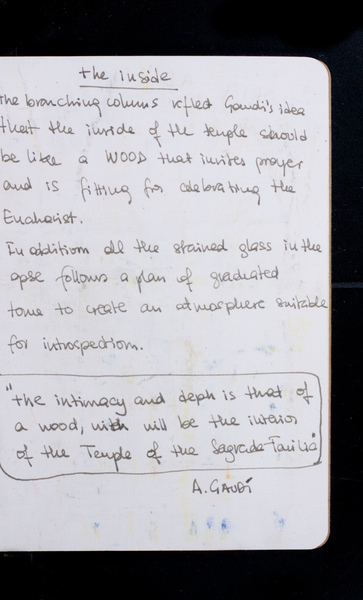 the inside
the branching colums reflect Gaudi's idea
that the inside of the temple should
be like a WOOD that invites prayer
and is fitting for celebrating the
Eucharist.
In addition all the stained glass in the
apse follows a plan of graduated
tone to create an atmosphere suitable
for introspection.
"the intimacy and deph is that of
a wood, wich will be the interior
of the Temple of the Sagrada Familia
A. GAUDÍ